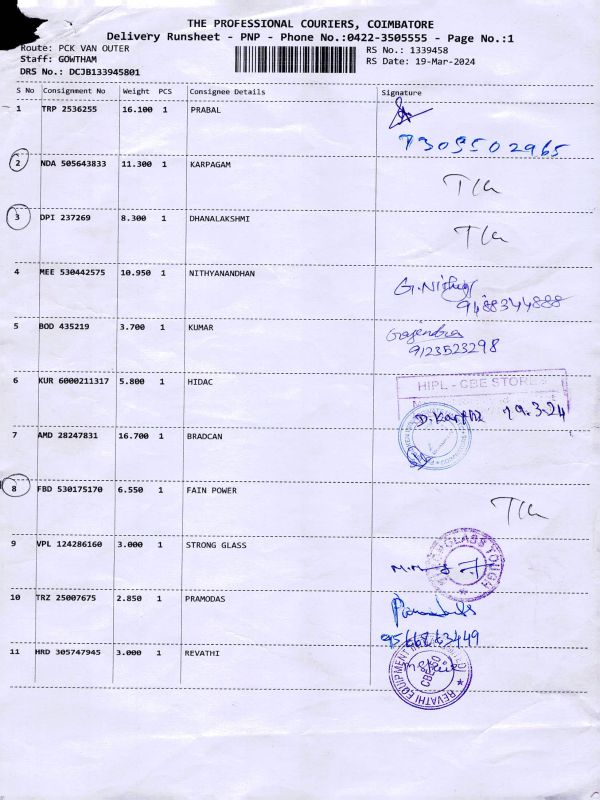 THE PROFESSIONAL COURIERS, COIMBATORE
Delivery Runsheet - PNP - Phone No.:0422-3505555 - Page No.:1
Route: PCK VAN OUTER
RS No.: 1339458
Staff: GOWTHAM
RS Date: 19-Mar-2024
DRS No.: DCJB133945801
S No Consignment No Weight PCS Consignee Details Signature
1 TRP 2536255 16.100 1 PRABAL
7305502965
2 NDA 505643833 11.300 1 KARPAGAM
3 DPI 237269 8.300 1 DHANALAKSHMI
4 MEE 530442575 10.950 1 NITHYANANDHAN
9488344888
5 BOD 435219 3.700 1 KUMAR Gajendra
9123523298
6 KUR 6000211317 5.800 1 HIDAC HIPL - CBE STORES
19.3.24
7 AMD 28247831 16.700 1 BRADCAN
8 FBD 530175170 6.550 1 FAIN POWER
9 VPL 124286160 3.000 1 STRONG GLASS
10 TRZ 25007675 2.850 1 PRAMODAS
11 HRD 305747945 3.000 1 REVATHI
REVATHI EQUIPMENT